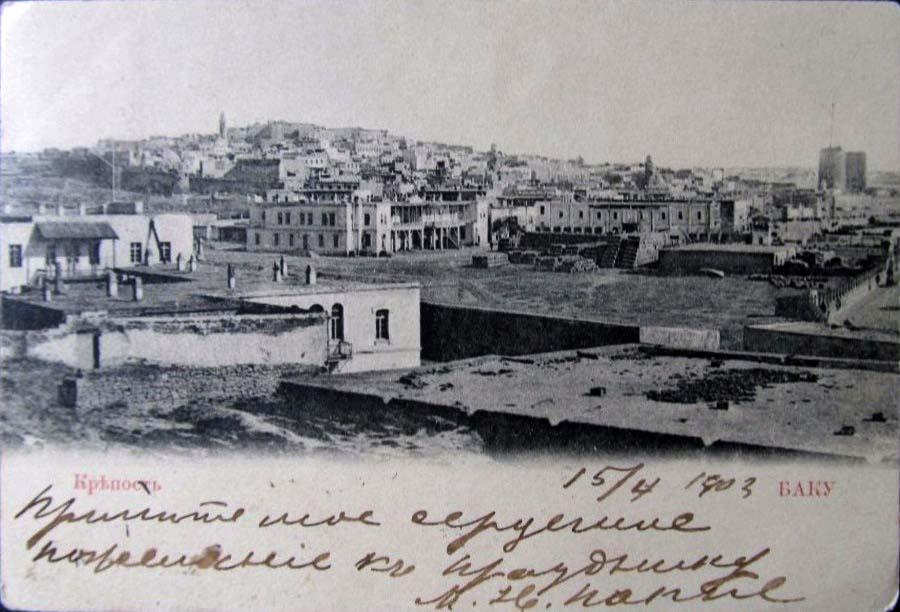 Крѣпость
БАКУ
15/4 1903
Примите мое сердечное
пожелание къ празднику
М. Н.